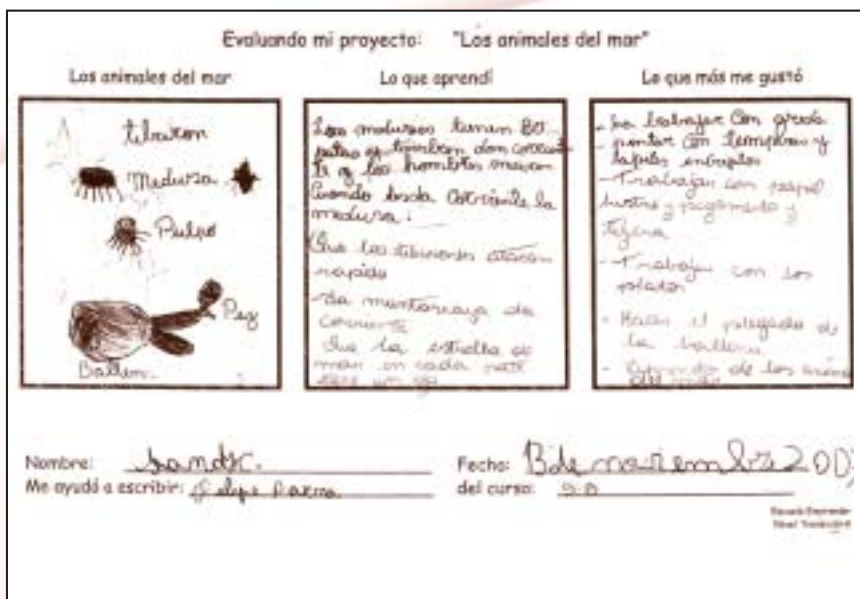 Evaluando mi proyecto: "Los animales del mar"
Los animales del mar
tiburon
Medusa
Pulpo
Pez
Ballen
Lo que aprendí
Las medusas tienen 80
patas y tambien dan corrient
te y los hombres mueren
Cuando le da corriente la
medusa.
Que los tiburones atacan
rapido
-La mantarraya da
corriente
Que la estrella de
mar en cada pata
tiene un ojo
Lo que más me gustó
- trabajar con greda
- pintar con temperas y
lapices
- Trabajar con papel
lustre y pegamento y
tijera
- Trabajar con los
platos
- Hacer el plegado de
la ballena
- de los
del mar
Nombre:
Me ayudó a escribir: Felipe
Fecha: 13 de noviembre 200
del curso: